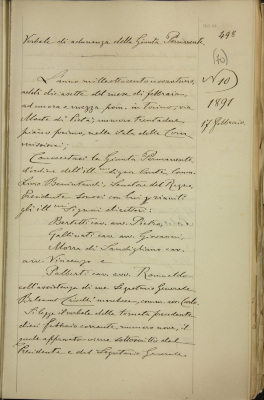 498
Verbale di adunanza della Giunta Permanente
(10)
N 10
1891
17 febbraio
L'anno milleottocentonovantuno,
addì diciasette del mese di febbraio,
ad una e mezza pom. in Torino, via
Monte di Pietà, numero trentadue
piano primo, nella sala delle Com
missioni;
Convocatasi la Giunta Permanente,
d'ordine dell'ill.mo signor Conte Comm.
Livio Benintendi, Senatore del Regno,
Presidente sonosi con lui riuniti
gli ill.mi Signori elettivi:
Bertetti cav. avv. Pietro,
Gallinati cav. avv. Giovanni,
Morra di Sandigliano cav.
avv. Vincenzo e
Palberti cav. avv. Romualdo
coll'assistenza di me Segretario Generale
marchese, comm. Carlo.
Si legge il verbale della tornata precedente
dieci febbraio corrente numero nove, il
quale approvato viene sottoscritto dal
Presidente e dal Segretario Generale